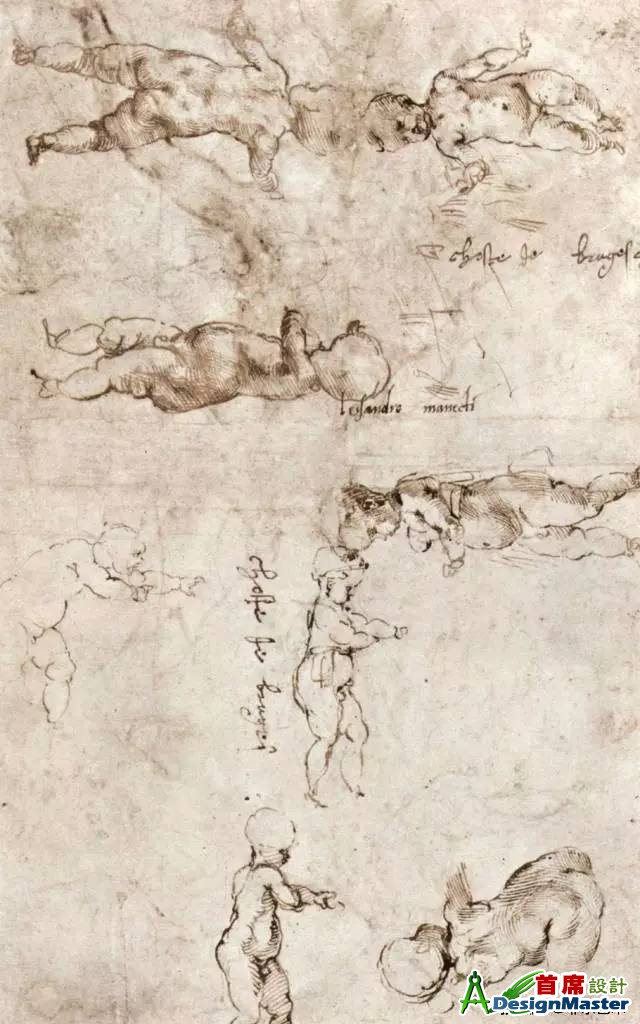 choste de bruges
lesandro manecti
choste de bruges
首席設計
ADesignMaster